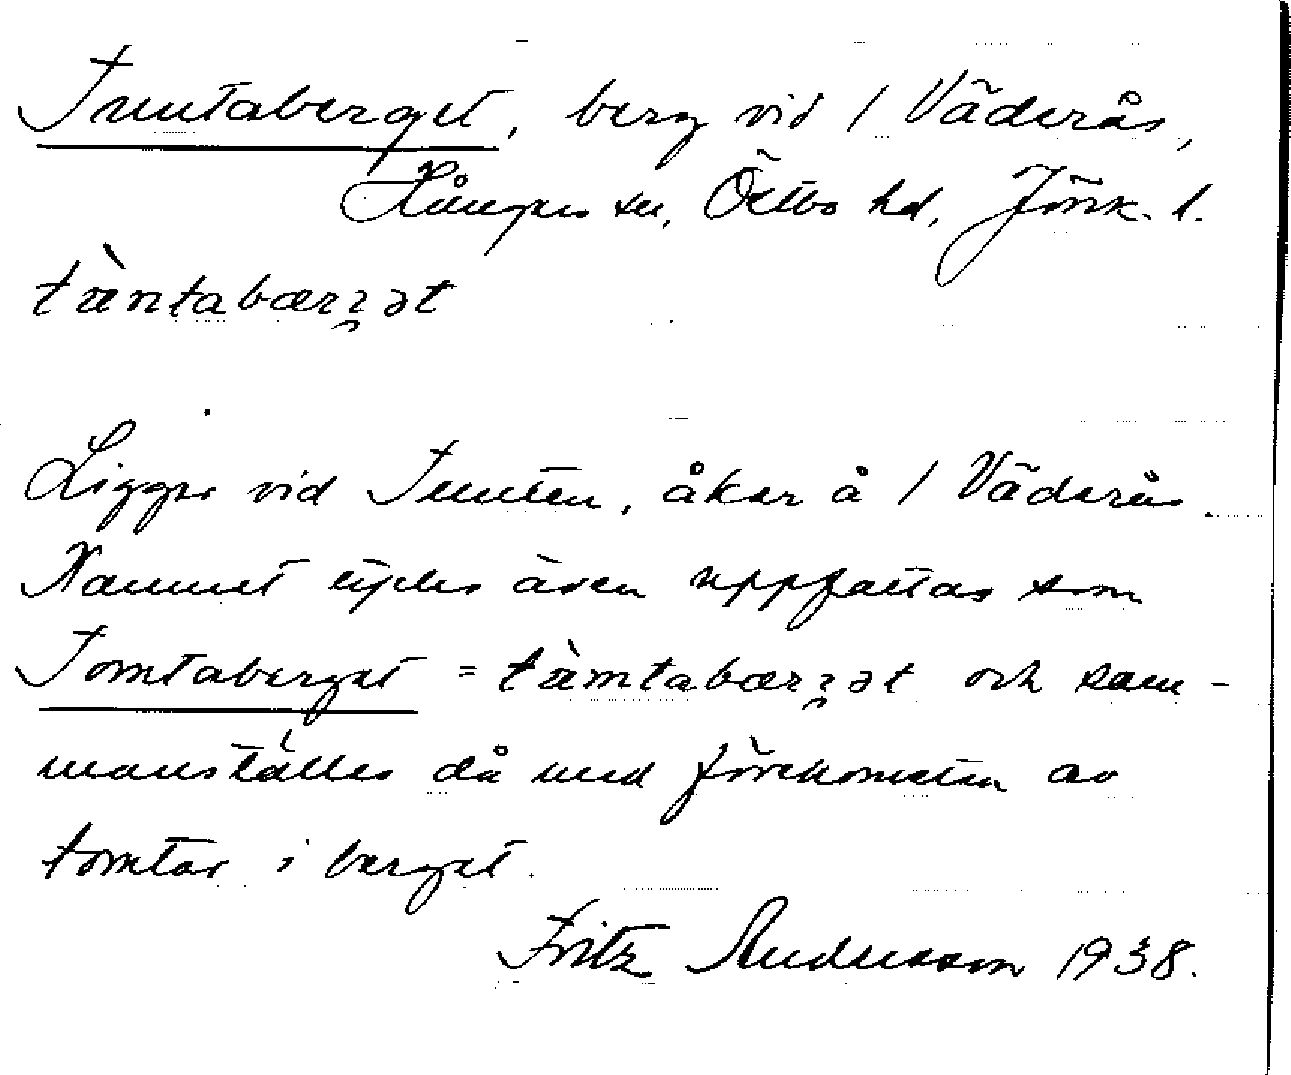 Truntaberget, berg vid 1 Väderås,
Långns sn, Östbo hd, Jönk. l.
tæ̀ntabærgət
Ligger vid Tunten, åker å 1 Väderås.
Namnet tydes även uppfattas som
Tomtaberget = tæ̀mtabærgət och sam-
manställes då med förekomsten av
tomtar i berget.
Fritz Andersson 1938.